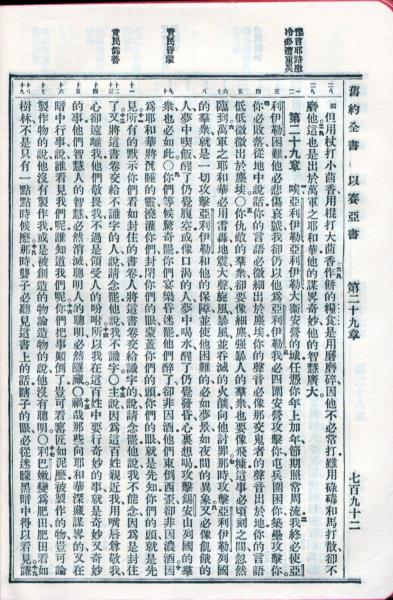 舊約全書 以賽亞書 第二十九章 七百九十二
豫言耶路撒
冷必遭重災
責民昏蒙
責民偽善
但用杖打小茴香用棍打大茴香作餅的糧食是用磨磨碎因他不必常打雖用碌碡和馬打散卻不
磨他這也是出於萬軍之耶和華他的謀畧奇妙他的智慧廣大
第二十九章 唉亞利伊勒亞利伊勒大衛安營的城任憑你年上加年節期照常周流我終必使亞
利伊勒困難他必悲傷哀號我卻仍以他為亞利伊勒我必四圍安營攻擊你屯兵圍困你築壘攻擊你
你必敗落從地中說話你的言語必微細出於塵埃你的聲音必像那交鬼者的聲音出於地你的言語
低低微微出於塵埃○你仇敵的羣衆卻要像細塵強暴人的羣衆也要像飛糠這事必頃刻之間忽然
臨到萬軍之耶和華必用雷轟地震大聲旋風暴風並吞滅的火燄向他討罪那時攻擊亞利伊勒列國
的羣衆就是一切攻擊亞利伊勒和他的保障並使他困難的必如夢景如夜間的異象又必像飢餓的
人夢中喫飯醒了仍覺腹空或像口渴的人夢中喝水醒了仍覺發昏心裏想喝攻擊錫安山列國的羣
衆也必如此○你們等候驚奇罷你們宴樂昏迷罷他們醉了卻非因酒他們東倒西歪卻非因濃酒因
為耶和華將沉睡的靈澆灌你們封閉你們的眼蒙蓋你們的頭你們的眼就是先知你們的頭就是先
見所有的默示你們看如封住的書卷人將這書卷交給識字的說請念罷他說我不能念因為是封住
了又將這書卷交給不識字的人說請念罷他說我不識字○主說因為這百姓親近我用嘴唇尊敬我
心卻遠離我他們敬畏我不過是領受人的吩咐所以我在這百姓中要行奇妙的事就是奇妙又奇妙
的事他們智慧人的智慧必然消滅聰明人的聰明必然隱藏○禍哉那些向耶和華深藏謀畧的又在
暗中行事說誰看見我們呢誰知道我們呢你們把事顛倒了豈可看窰匠如泥麽被製作的物豈可論
製作物的說他沒有製作我或是被創造的物論造物的說他沒有聰明○利巴嫩變為肥田肥田看如
樹林不是只有一點點時候麽那時聾子必聽見這書上的話瞎子的眼必從迷矇黑暗中得以看見謙